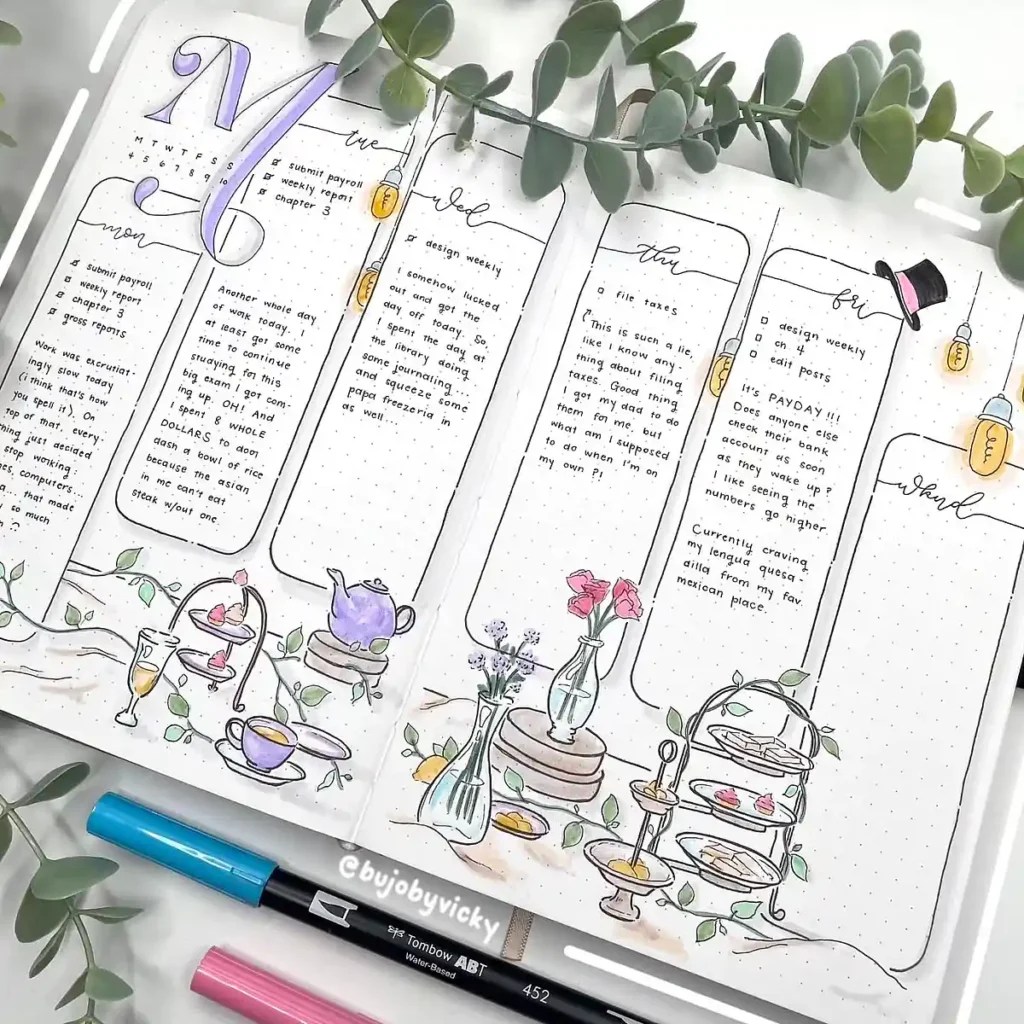 M
M T W T F S S
4 5 6 7 8 9 10
mon
submit payroll
weekly report
chapter 3
gross reports
Work was excruciat-
ingly slow today
(i think that's how
you spell it). On
top of that, every-
thing just decided
stop working:
computers...
that made
so much
tue
submit payroll
weekly report
chapter 3
Another whole day
of work today. I
at least got some
time to continue
studying for this
big exam I got com-
ing up. OH! And
I spent 8 WHOLE
DOLLARS to door
dash a bowl of rice
because the asian
in me can't eat
steak w/out one.
wed
design weekly
I somehow lucked
out and got the
day off today. So,
I spent the day at
the library doing
some journaling...
and squeeze some
papa freezeria in
as well...
thu
file taxes
(This is such a lie,
like I know any
thing about filing
taxes. Good thing
I got my dad to do
them for me, but
what am I supposed
to do when I'm on
my own ?!
fri
design weekly
ch 4
edit posts
It's PAYDAY!!!
Does anyone else
check their bank
account as soon
as they wake up?
I like seeing the
numbers go higher
Currently craving
my lengua quesa-
dilla from my fav.
mexican place.
wknd
@bujobyvicky
Tombow ABT
Water-Based
452